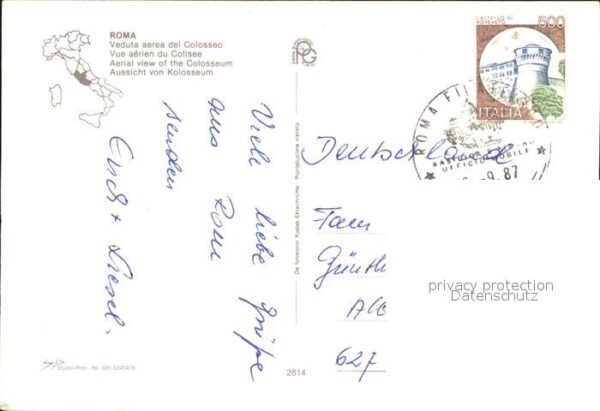 ROMA
Veduta aerea del Colosseo
Vue aérien du Colisee
Aerial view of the Colosseum
Aussicht von Kolosseum
Viele liebe Grüße
aus Rom
senden
Erich + Liesel.
Studio Plan - Tel. (06)
2814
Da fotocolor Kodak Ektachrome - Riproduzione vietata
CASTELLO DI ROVERETO
500
ITALIA
ROMA
UFFICIO MOBILE
9.87
Deutschland
Fam
Günth
627
privacy protection
Datenschutz